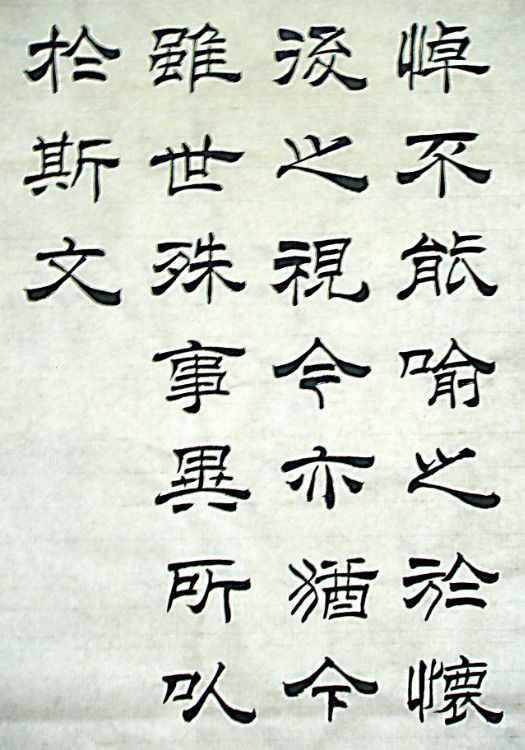 悼不能喻之於懷
後之視今亦猶今
雖世殊事異所以
於斯文